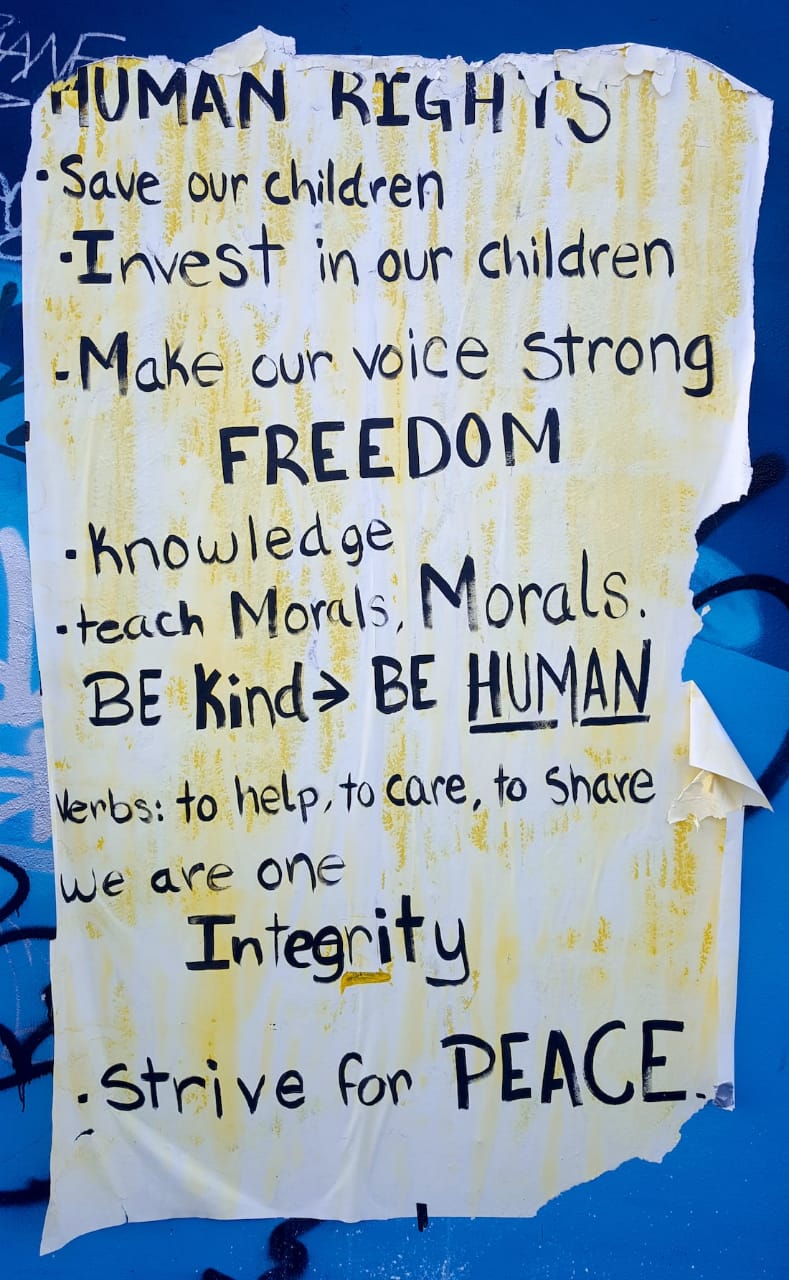 HUMAN RIGHTS
·Save our children
·Invest in our children
·Make our voice strong
FREEDOM
·Knowledge
·teach Morals, Morals.
BE Kind→ BE HUMAN
Verbs: to help, to care, to share
we are one
Integrity
·Strive for PEACE.